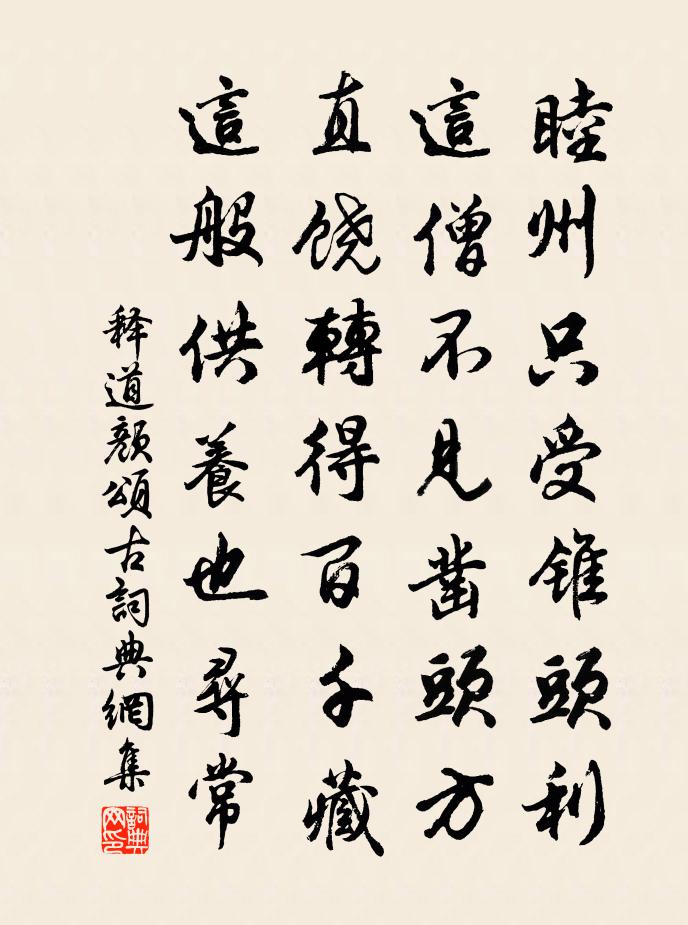 睦州只受锥頭利
這僧不見凿頭方
直饶轉得百千藏
這般供養也尋常
释道颜頌古詞典網集
詞典
网印